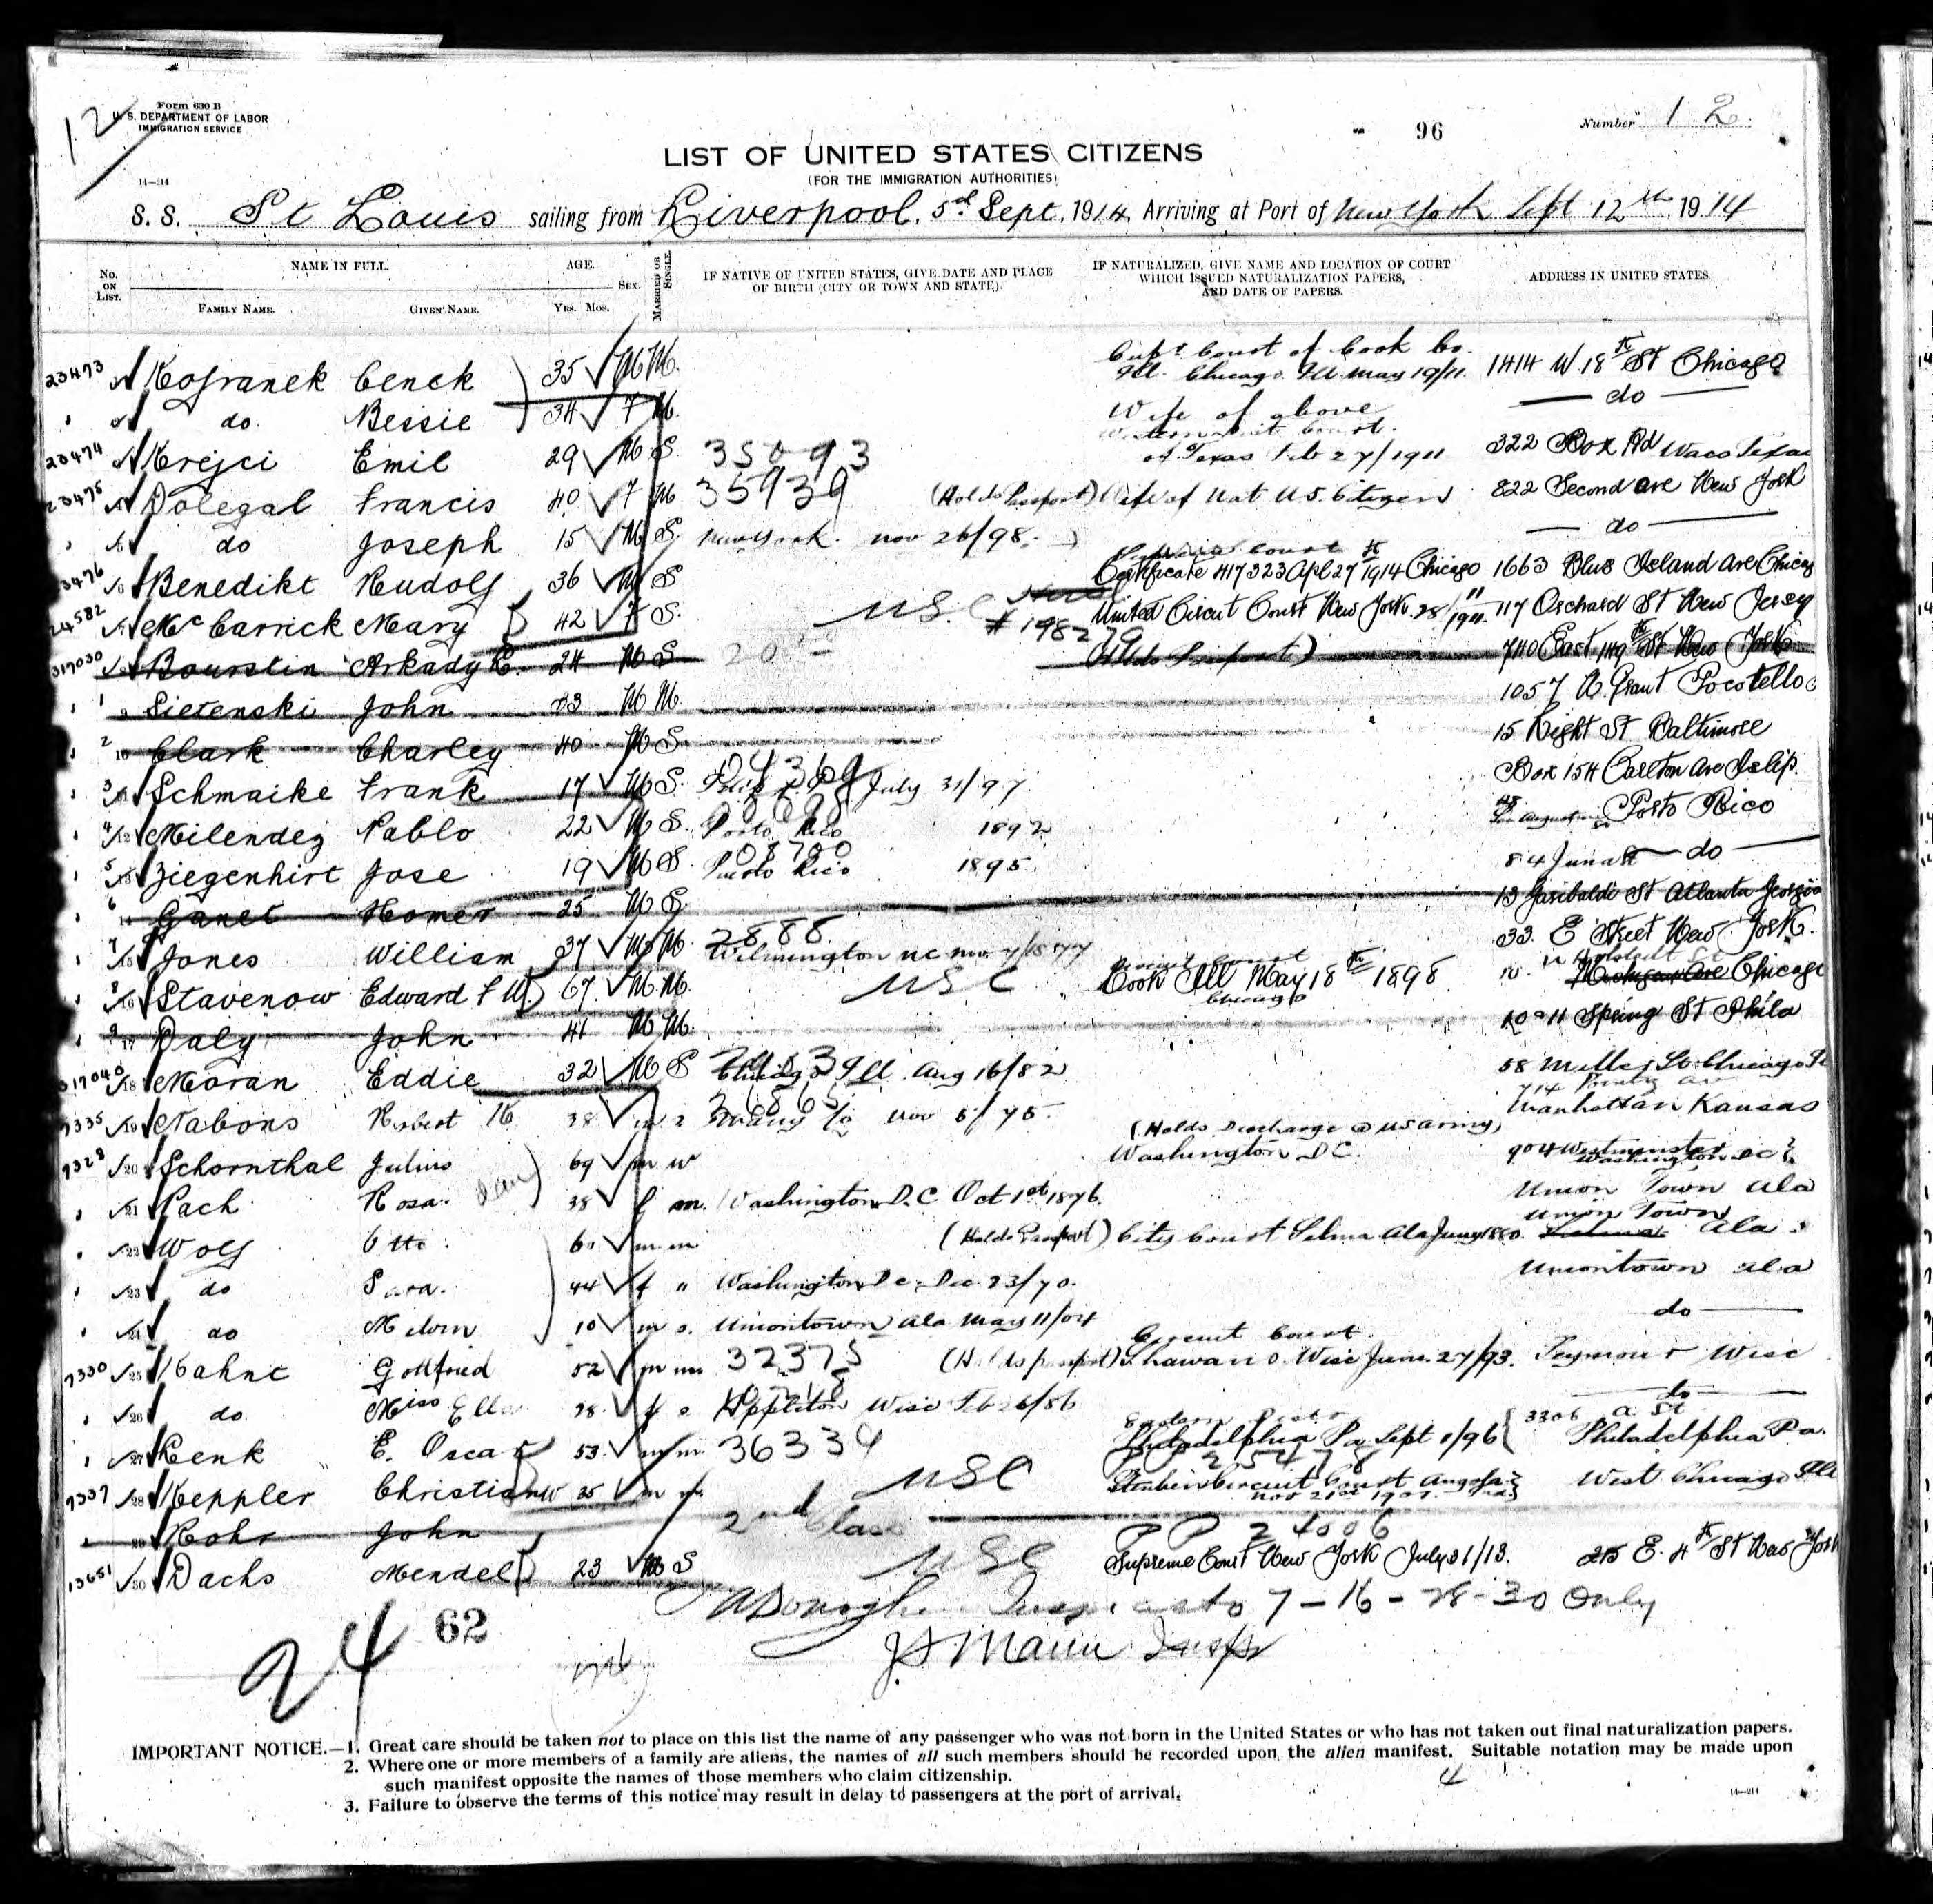 12
Form 630 B
U. S. DEPARTMENT OF LABOR
IMMIGRATION SERVICE
96
Number 12.
LIST OF UNITED STATES CITIZENS
(FOR THE IMMIGRATION AUTHORITIES)
14—214
S. S. St Louis sailing from Liverpool, 5th Sept, 1914, Arriving at Port of New York Sept 12th, 1914
No. ON LIST.
NAME IN FULL.
FAMILY NAME. GIVEN NAME.
AGE.
YRS. MOS.
SEX.
MARRIED OR SINGLE.
IF NATIVE OF UNITED STATES, GIVE DATE AND PLACE OF BIRTH (CITY OR TOWN AND STATE).
IF NATURALIZED, GIVE NAME AND LOCATION OF COURT WHICH ISSUED NATURALIZATION PAPERS, AND DATE OF PAPERS.
ADDRESS IN UNITED STATES
23473 Kofranek Cenek 35 M M. Court of Cook Co. Ill. Chicago Ill. May 19/11. 1414 W. 18th St Chicago
do. Bessie 34 F M. Wife of above do
23474 Krejci Emil 29 M S. 35093 of Texas Feb 27/1911 322 Box Rd Waco Texas
23475 Dolegal Francis 40 F M 35939 (Holds Passport) Wife of Nat U.S. Citizen 822 Second Ave New York
do Joseph 15 M S. New York. Nov 26/98. do
23476 Benedikt Rudolf 36 M S Court Certificate 417323 Apl 27th 1914 Chicago 1663 Blue Island Ave Chicag
24582 McCarrick Mary 42 F S. USC # 1982 United Circut Court New York. 28/11 1911. 117 Orchard St New Jersey
317030 Bourstin Arkady 24 M S 20 (Holds Passport) 740 East 149th St New York
1 9 Sietenski John 33 M M. 1057 N. Grant Pocotello
2 10 Clark Charley 40 M S. 15 Night St Baltimore
3 Schmaike Frank 17 M S. July 31/97 Box 154 Carlton Ave Islip.
4 12 Milendez Pablo 22 M S. Porto Rico 1892 Porto Rico
5 13 Ziegenhirt Jose 19 M S. 08700 Puerto Rico 1895 84 Juna St do
6 14 Ganet Homer 25 M S. 13 Garibaldi St Atlanta Georgia
7 15 Jones William 37 M M. 2888 Wilmington NC 33 E Street New York.
8 16 Stavenow Edward F W. 67 M. M. USC Cook Ill May 18th 1898 Chicago N. Halsted St Michigan Ave Chicago
9 17 Daly John 41 M M. 10 11 Spring St Phila
317040 18 Moran Eddie 32 M S Chicago Ill. Aug 16/82 58 Miller St Chicago
7335 19 Nabons Robert K. 38 m 36865 Nov 5/75 (Holds Discharge US Army) 714 Manhattan Kansas
7328 20 Schornthal Julius 69 m w Washington D.C. 904 Westminster Washington DC
21 Pach Rosa. 38 f m. Washington D.C Oct 1st 1876. Union Town Ala
22 Wolf Otto. 60 m m (Holds Passport) City Court Selma Ala 1880. Union Town Selma Ala
23 do Sara. 44 f " Washington D.C. Dec 23/70. Uniontown Ala
24 do Melvin 10 m s. Uniontown Ala May 11/04 do
7330 25 Kahnt Gottfried 52 m m 32375 (Holds passport) Circuit Court. Shawano. Wisc June 27/93. Seymour Wisc
26 do Miss Ella 28. f s Appleton Wisc Feb 26/86 do
27 Renk E. Oscar 53. m m 36334 Eastern Distr Philadelphia Pa Sept 1/96 3306 A. St Philadelphia Pa.
7337 28 Keppler Christian 35 m m USC Steuben Circuit Court Angola Nov 21st West Chicago Ill
29 Rohr John 2nd Class
13651 30 Dachs Mendel 23 M S USC P P 24006 Supreme Court New York July 31/13. 215 E. 4th St New York
Insp as to 7 - 16 - 28 - 30 Only
24 62
J S Mann Inspr
IMPORTANT NOTICE.—1. Great care should be taken not to place on this list the name of any passenger who was not born in the United States or who has not taken out final naturalization papers.
2. Where one or more members of a family are aliens, the names of all such members should be recorded upon the alien manifest. Suitable notation may be made upon
such manifest opposite the names of those members who claim citizenship.
3. Failure to observe the terms of this notice may result in delay to passengers at the port of arrival.
4
14—214